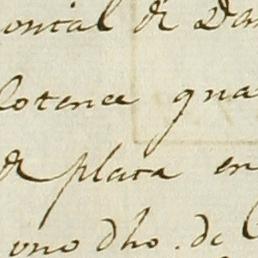 onial de Da
lotenee qua
de plata en
ono dho. de